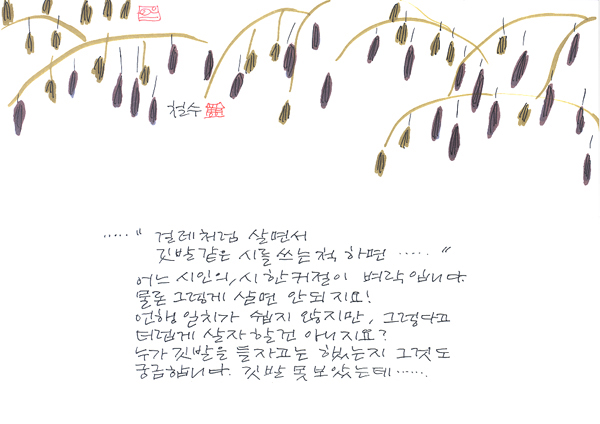 철수
····· " 걸레처럼 살면서
깃발같은 시를 쓰는척 하면 ····· "
어느 시인의, 시 한귀절이 벼락입니다.
물론 그렇게 살면 안되지요!
언행일치가 쉽지 않지만, 그렇다고
더럽게 살자 할건 아니지요?
누가 깃발을 들자고는 했는지 그것도
궁금합니다. 깃발 못보았는데······.